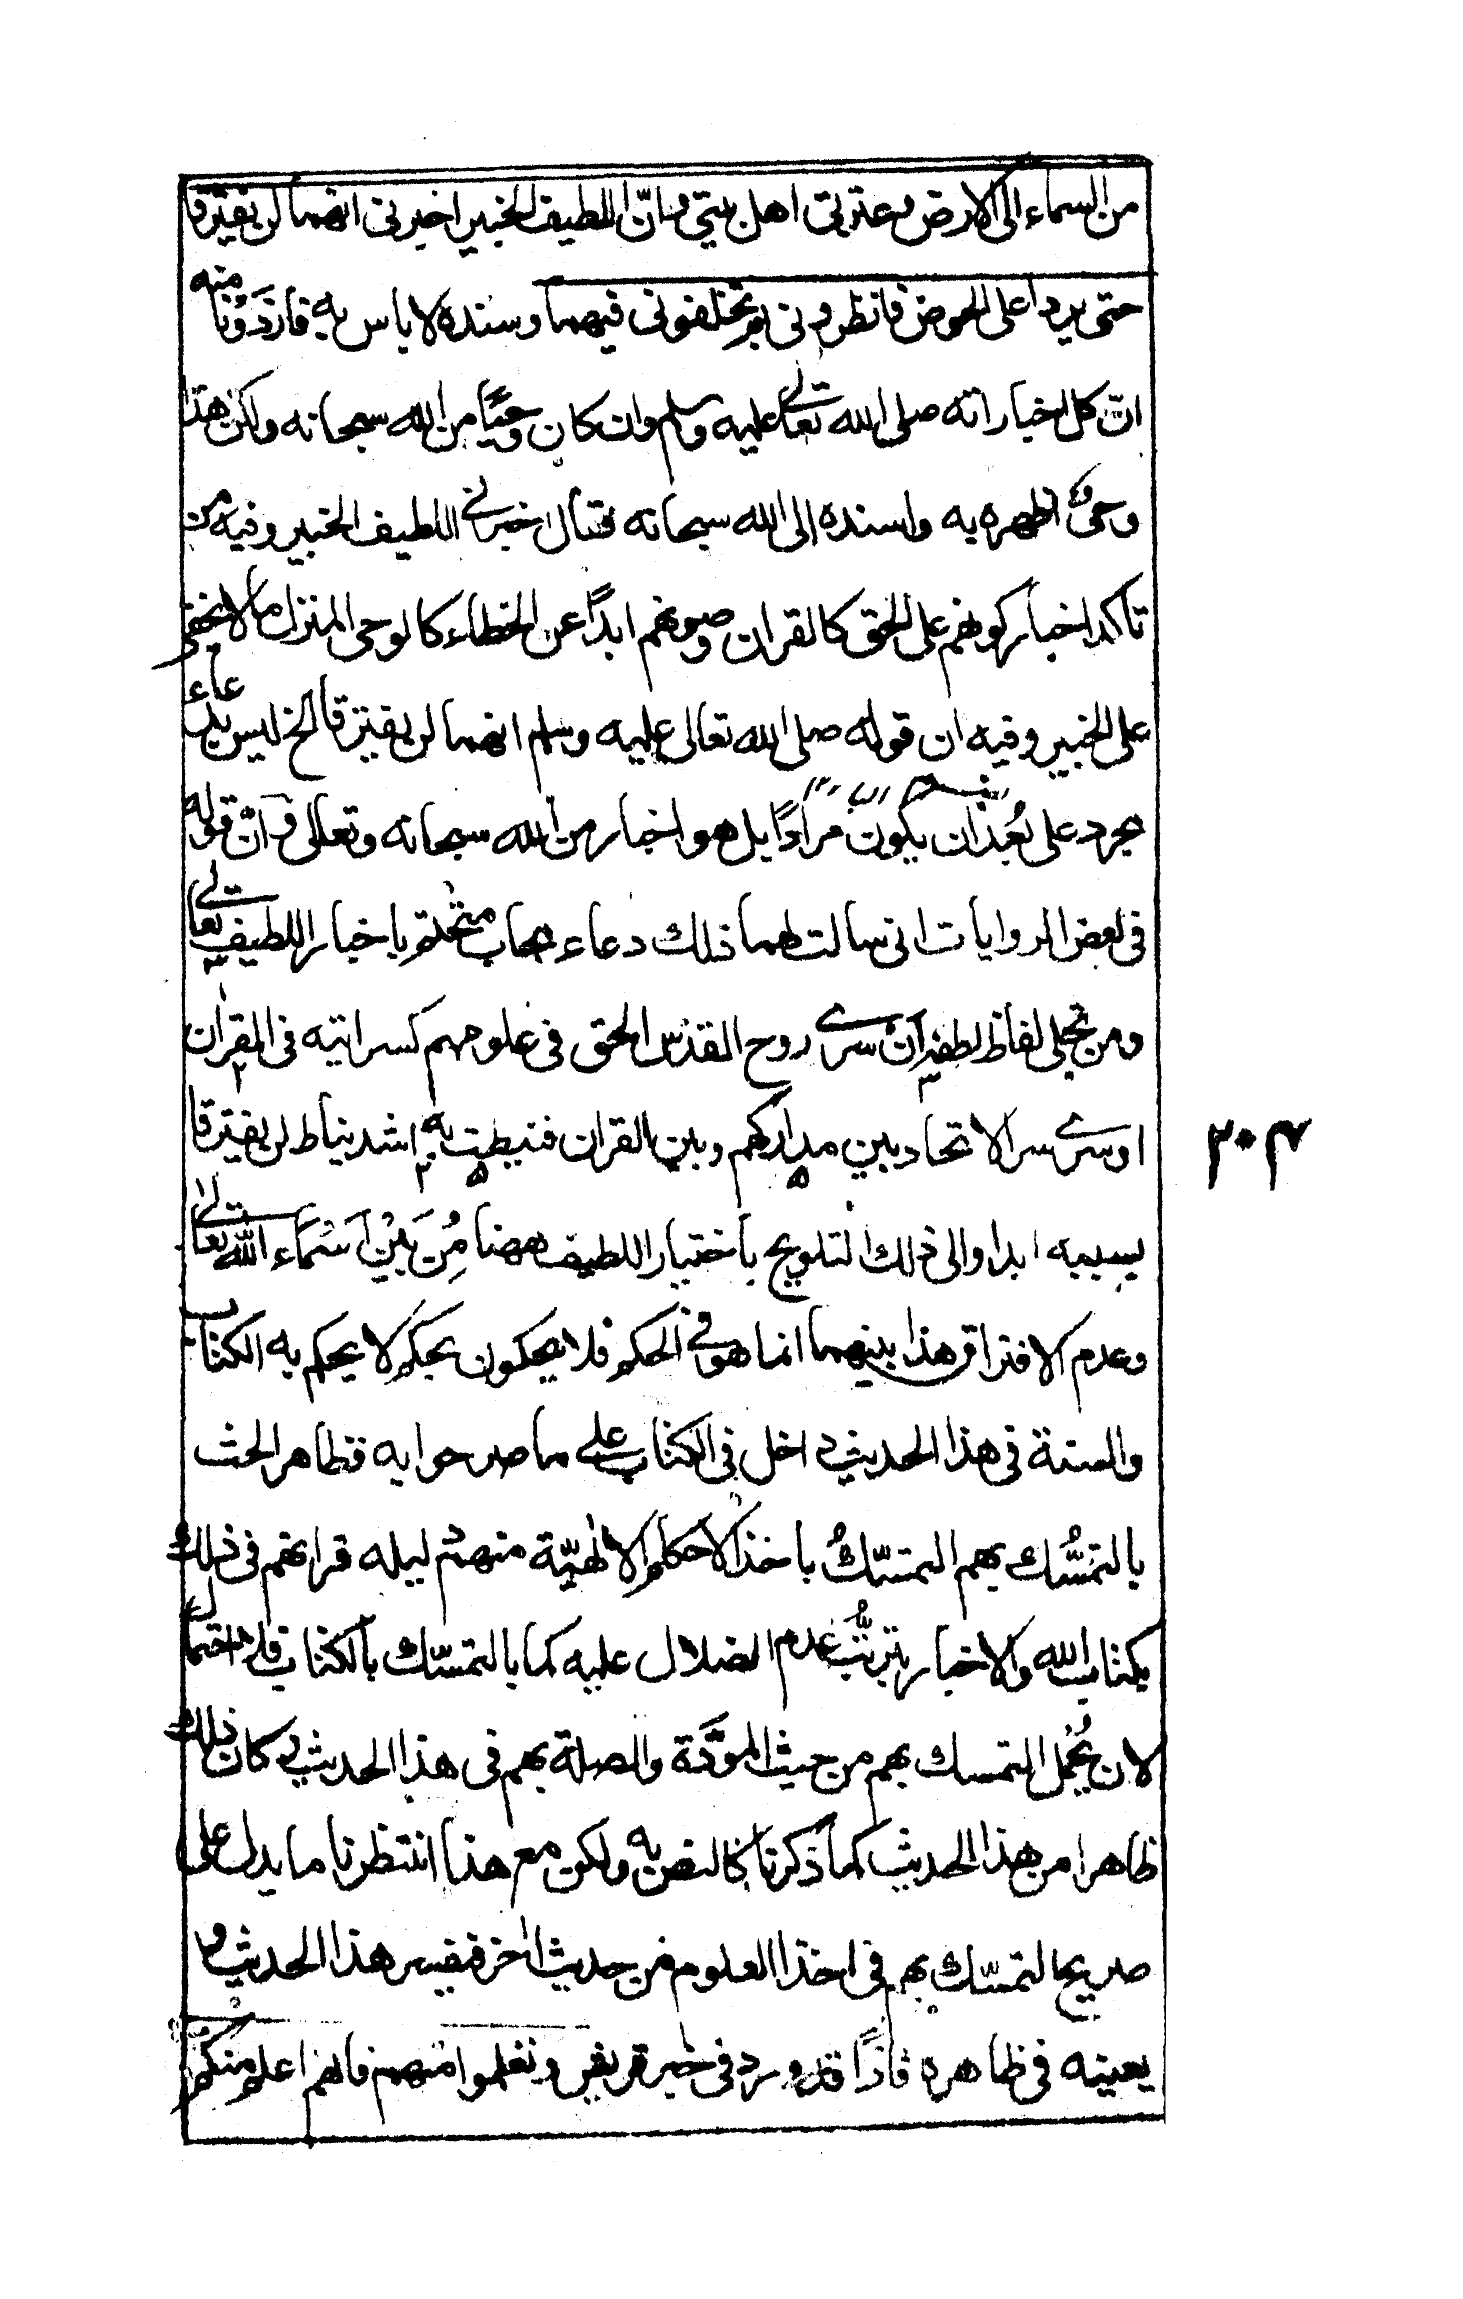 من السماء الى الارض وعترتى اهل بيتي وانّ اللطيف الخبير اخبرنى انهما لن يفترقا
حتى يردا على الحوض فانظروا نى بم تخلفونى فيهما وسنده لا باس به فازددنا منه
انّ كل اخباراته صلى الله تعالى عليه وسلم وان كان وحيًا من الله سبحانه ولكن هذا
وحى اظهره به واسنده الى الله سبحانه فقال اخبرني اللطيف الخبير وفيه من
تأكد اخبار كونهم على الحق كالقران وصونهم ابدًا عن الخطاء كالوحى المنزل ما لا يخفى
على الخبير وفيه ان قوله صلى الله تعالى عليه وسلم انهما لن يفترقا الخ ليس بدعاء
مجرد على بُعْد ان يكون مرادًا بل هو اخبار من الله سبحانه وتعالى وانّ قوله
فى بعض الروايات انى سالت لهما ذلك دعاء مجاب متحتم باخبار اللطيف تعالى
ومن تجلى لفاظ لطفه ان سرى روح القدس الحق فى علومهم كسرايته فى القران
او سرى سر الاتحاد بين مداركهم وبين القران فنيطت به اشد نياط لن يفترقا
بسببه ابدا والى ذلك التلويح باختيار اللطيف ههنا مِنْ بَيْنِ اَسْمَاء الله تعالى
وعدم الافتراق هذا بينهما انما هو في الحكم فلا يحكمون بحكم لا يحكم به الكتاب
والسنة فى هذا الحديث داخل فى الكتاب على ما صرحوا به فظاهر الحث
بالتمسُّك بهم التمسّكُ باخذ الاحكام الالٰهيّة منهم ليله قرانهم فى ذلك
بكتاب الله والاخبار بترتُّب عدم الضلال عليه كما بالتمسّك بالكتاب فلا احتمال
لان يُحْمل التمسك بهم من حيث المودّة والصلة بهم فى هذا الحديث كان ذلك
ظاهرا من هذا الحديث كما ذكرنا كالنص به ولكن مع هذا انتظرنا ما يدل على
صريحا لتمسّك بهم فى اخذ العلوم من حديث اٰخر فيفسر هذا الحديث و
يعينه فى ظاهره فاذًا قد ورد فى خبر قريش وتعلموا منهم فانهم اعلم منكم
٣٠٣